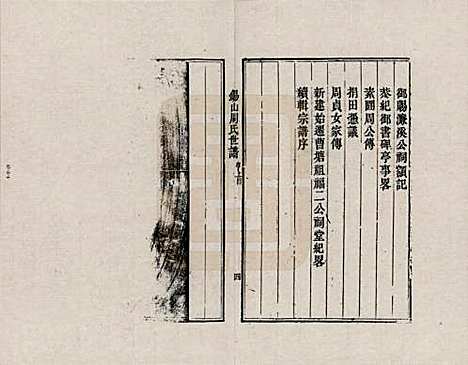 御賜濂溪公祠額記
恭紀御書碑亭事畧
素園周公傳
捐田憑議
周貞女家傳
新建始遷曹塘祖福二公祠堂紀畧
續輯宗譜序
錫山周氏世譜
四